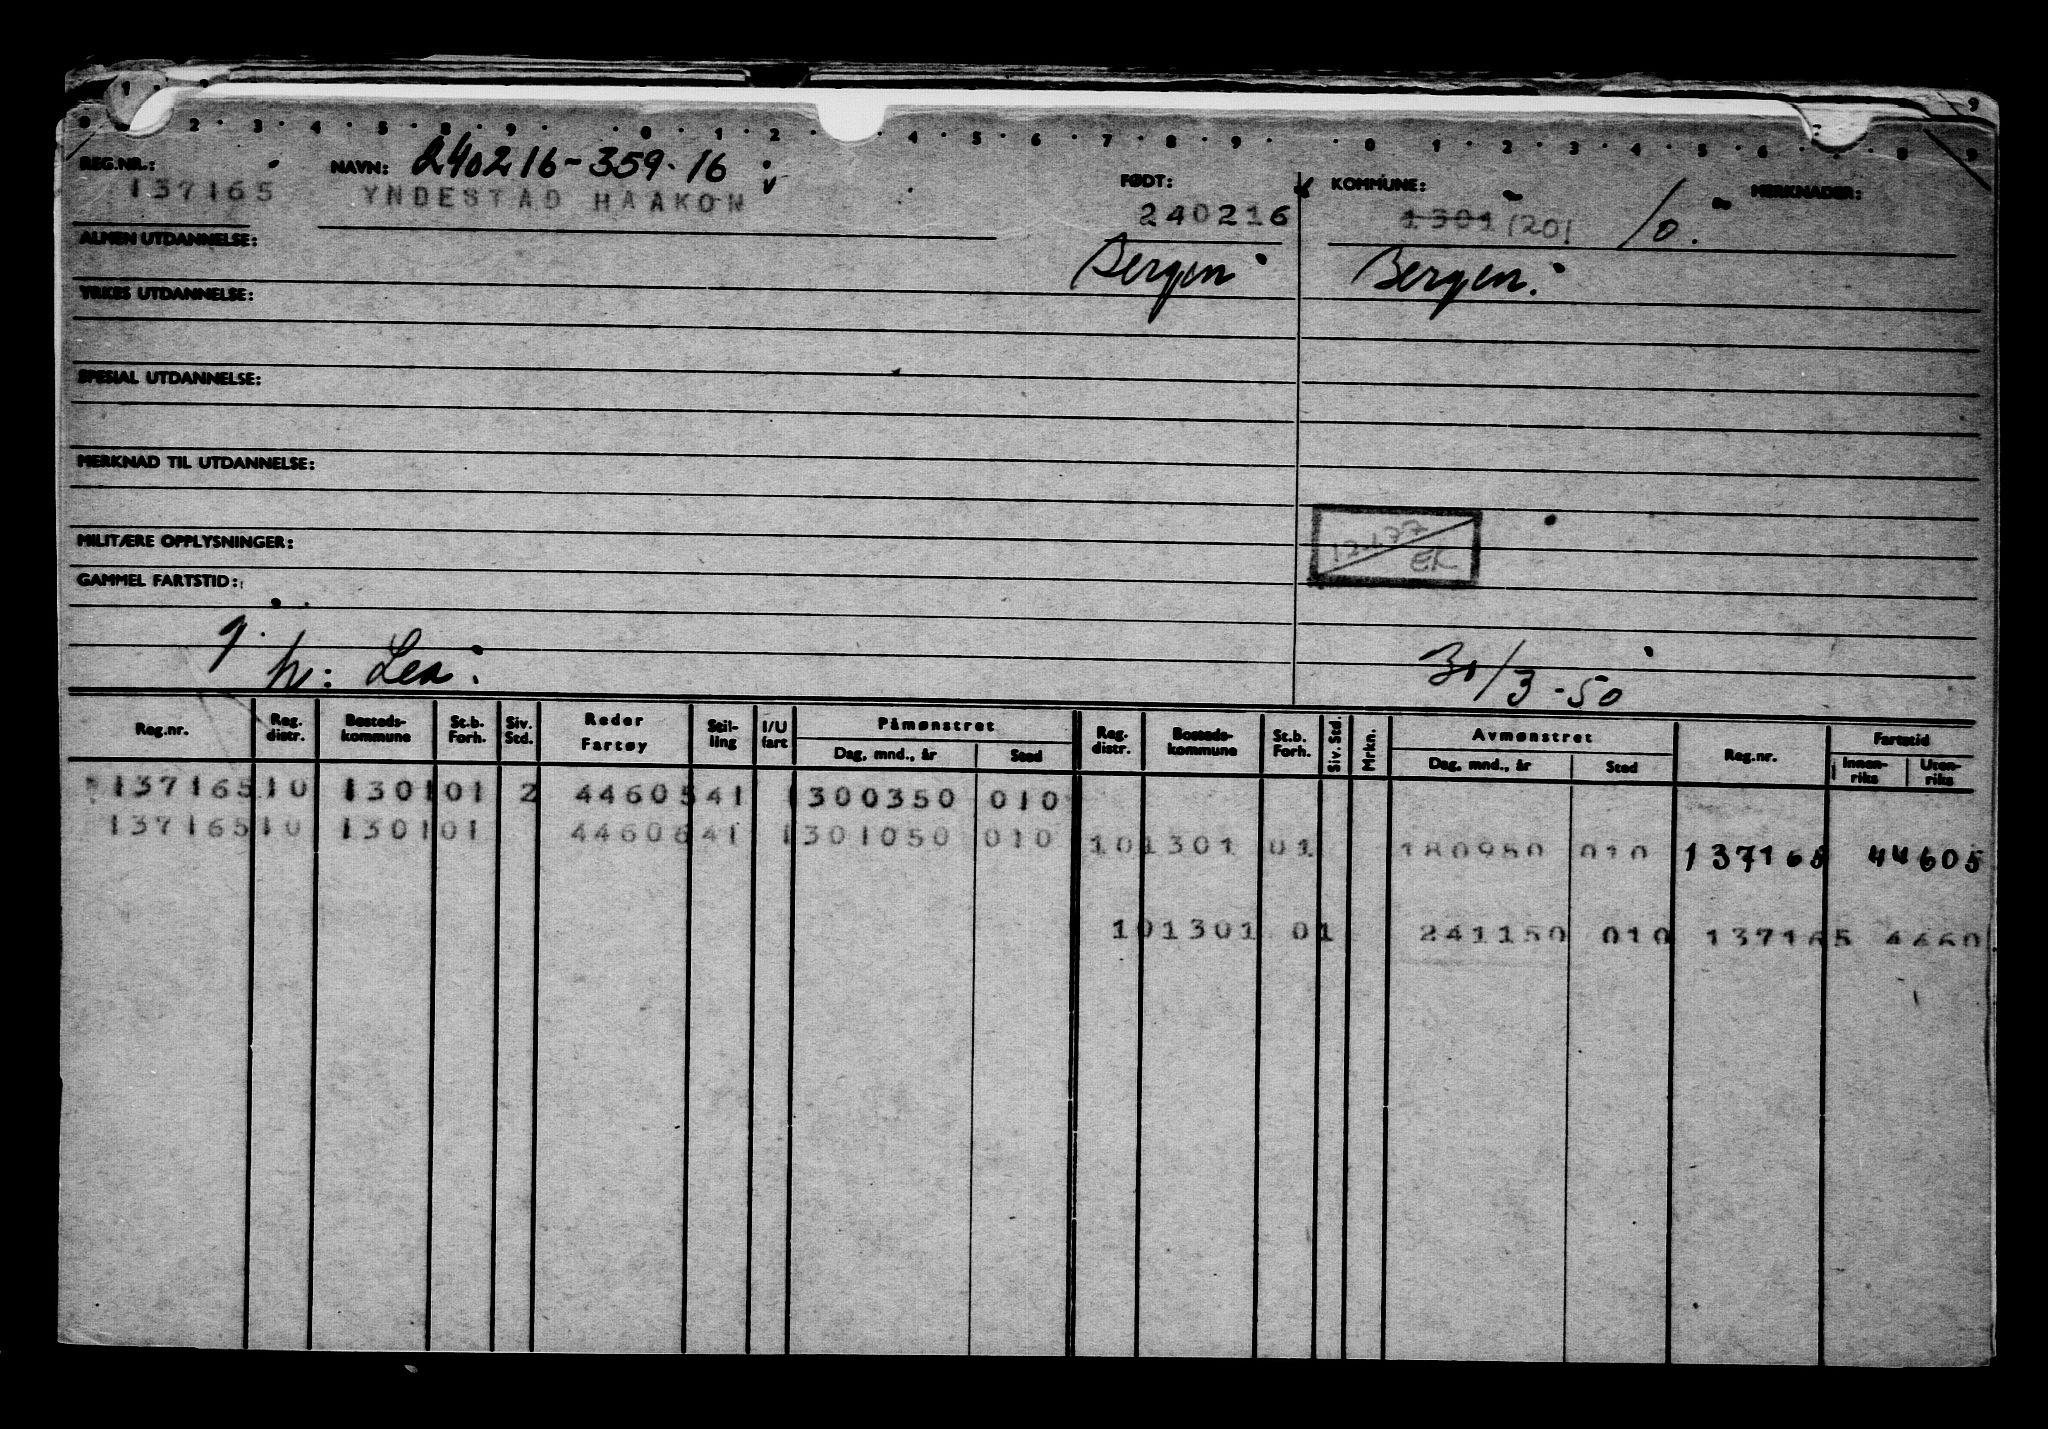 9
1
0 2 3 4 5 8 9 0 1 2 4 5 6 7 8 9 0 1 2 3 4 5 6 8 9
REG.NR.: NAVN: 240216-359.16 FØDT: KOMMUNE: MERKNADER:
137165 YNDESTAD HAAKON 240216 1301 1201
ALMEN UTDANNELSE: Bergen Bergen.
YRKES UTDANNELSE:
SPESIAL UTDANNELSE:
MERKNAD TIL UTDANNELSE:
MILITÆRE OPPLYSNINGER: EK
GAMMEL FARTSTID:
g. h: Lea. 30/3-50
Reg.nr. Reg. distr. Bosteds-kommune St.b. Forh. Siv. Std. Reder Fartøy Stil-ling I/U fart Påmønstret Dag, mnd., år Sted Reg. distr. Bosteds-kommune St.b. Forh. Siv. Std. Mrkn. Avmønstret Dag, mnd., år Sted Reg.nr. Fartstid Innen-riks Uten-riks
137165 10 1301 01 2 44605 41 1 300350 010
137165 10 1301 01 44606 41 1 301050 010 10 1301 01 180950 010 137165 44605
10 1301 01 241150 010 137165 4460